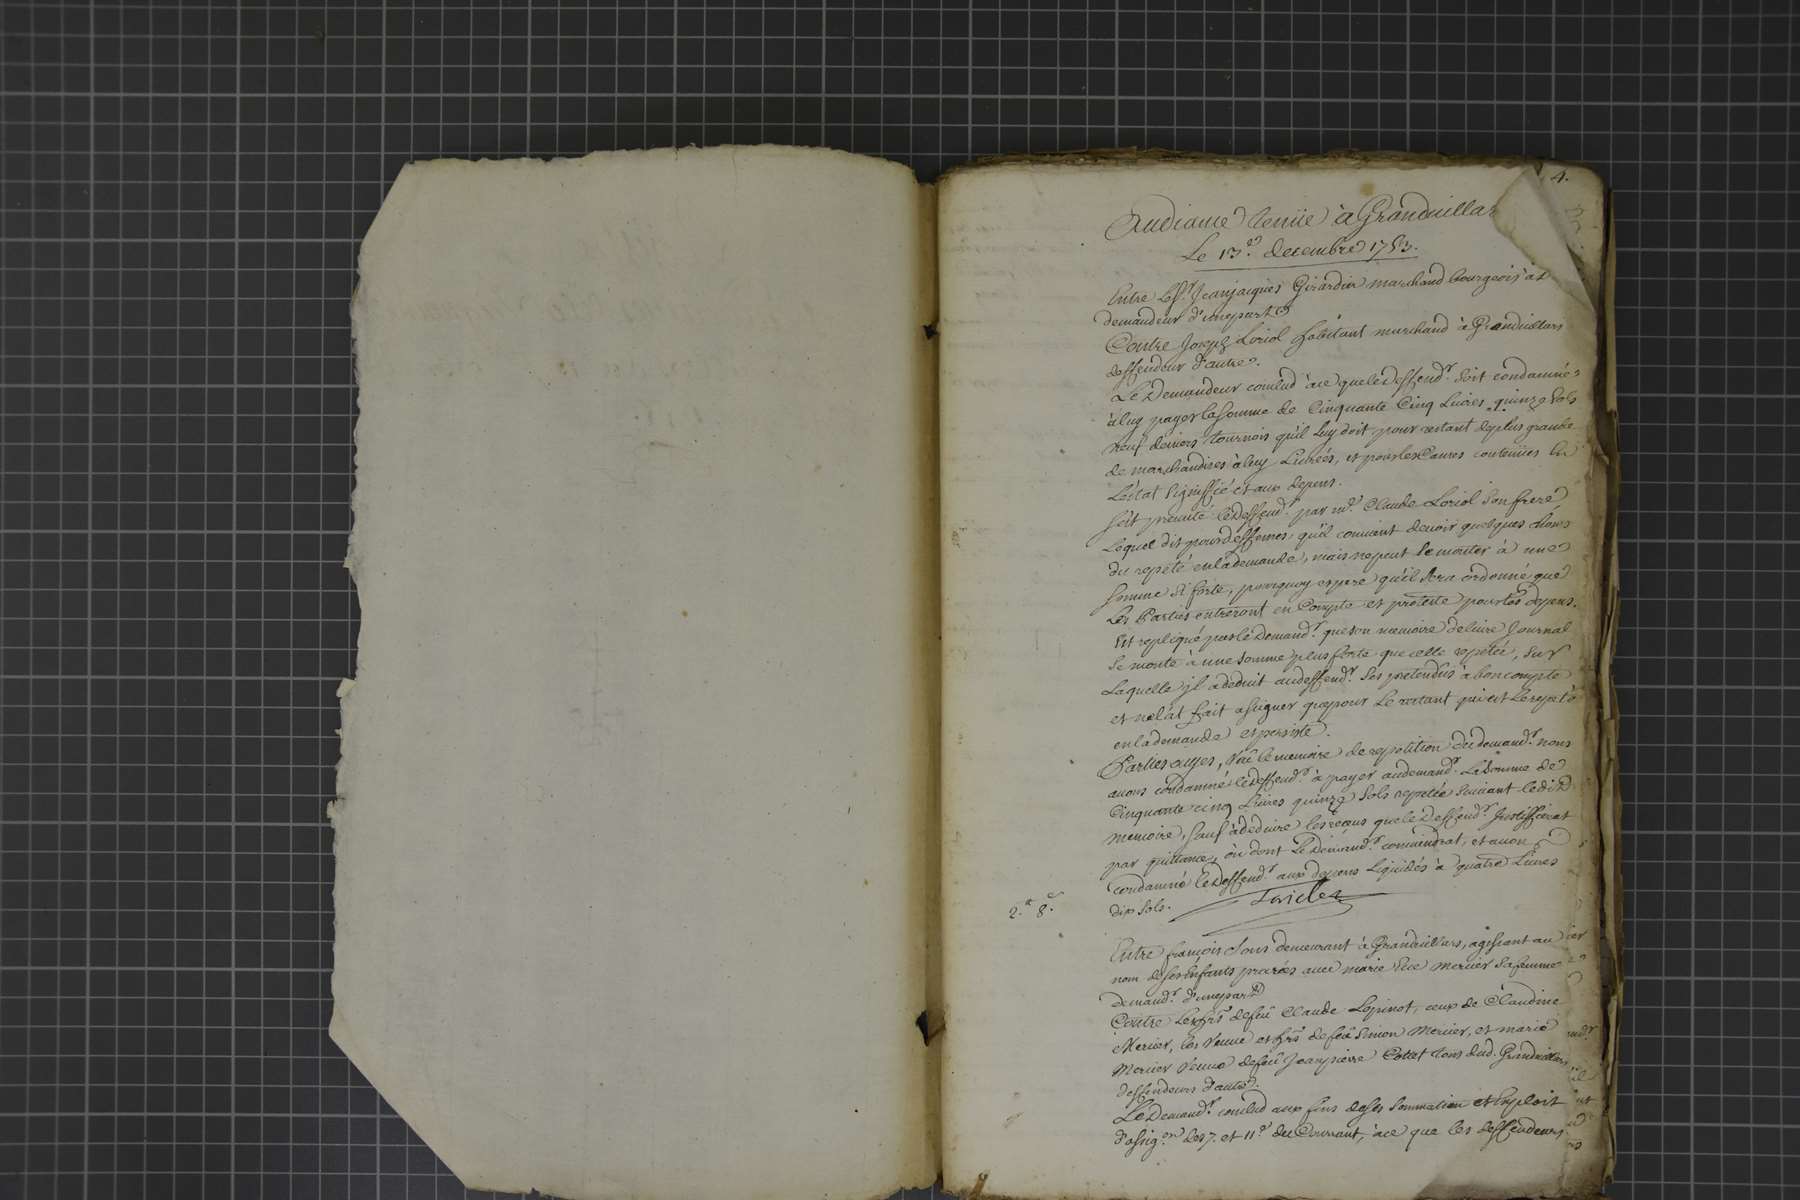 4.
Audiance tenüe à Granduillar
Le 13.e decembre 1753.
Entre le Sr. Jeanjacques Girardin marchand bourgeois à
demandeur d'unepart
Contre Joseph Loriol habitant marchand à Granduillars
deffendeur d'autre.
Le Demandeur conclud àce quele Deffendr. soit condamné
àluy payer la somme de Cinquante Cinq Livres quinze sols
neuf deniers tournois qu'il luy doit pour restant deplus grande
de marchandises àluy Livrées, et pour les Causes contenües en
Létat signiffié et aux depens.
soit presenté le Deffendr. par mr. Claude Loriol son frere
Lequel dit pour deffenses, qu'il convient devoir quelques choses
du repeté enlademande, mais nepeut se monter à une
somme si forte, pourquoy espere qu'il sera ordonné que
Les Parties entreront en Compte et proteste pour les depens.
Est repliqué par le Demandr. que son memoire de livre Journal
se monte à une somme plus forte que celle repetée, sur
Laquelle jl adeduit audeffendr. ses pretendus à boncompte
et nel'at fait assigner que pour Le restant qui est Le repeté
enlademande et persiste.
Parties ouyes, Vû le memoire de repetition du demandr. nous
avons condamné le deffendr. à payer audemandr. La somme de
Cinquante cinq Livres quinze sols repetée suivant ledit
memoire, sauf àdeduire les receus que le Deffendr. Justiffierat
par quittance, où dont Le Demandr. conviendrat, et avon
condamné le Deffendr. aux depens Liquidés à quatre Livres
dix sols.
2.# 8.s
Entre françois demeurant à Granduillars, agissant au
nom de ses Enfants procréés avec marie Mercier sa femme
demandr. d'unepart
Contre Les hrs. defeu Claude Lopinot, ceux de Claudine
Mercier, les Veuve et hrs. de feu Simon Mercier, et marie
Mercier Veuve defeu Jeanpierre Cottet tous dud. Granduillars
deffendeurs d'autre.
Le Demandr. conclud aux fins deses sommation et Exploit
d'assig.on des 7. et 11.e du Courant, àce que les deffendeurs